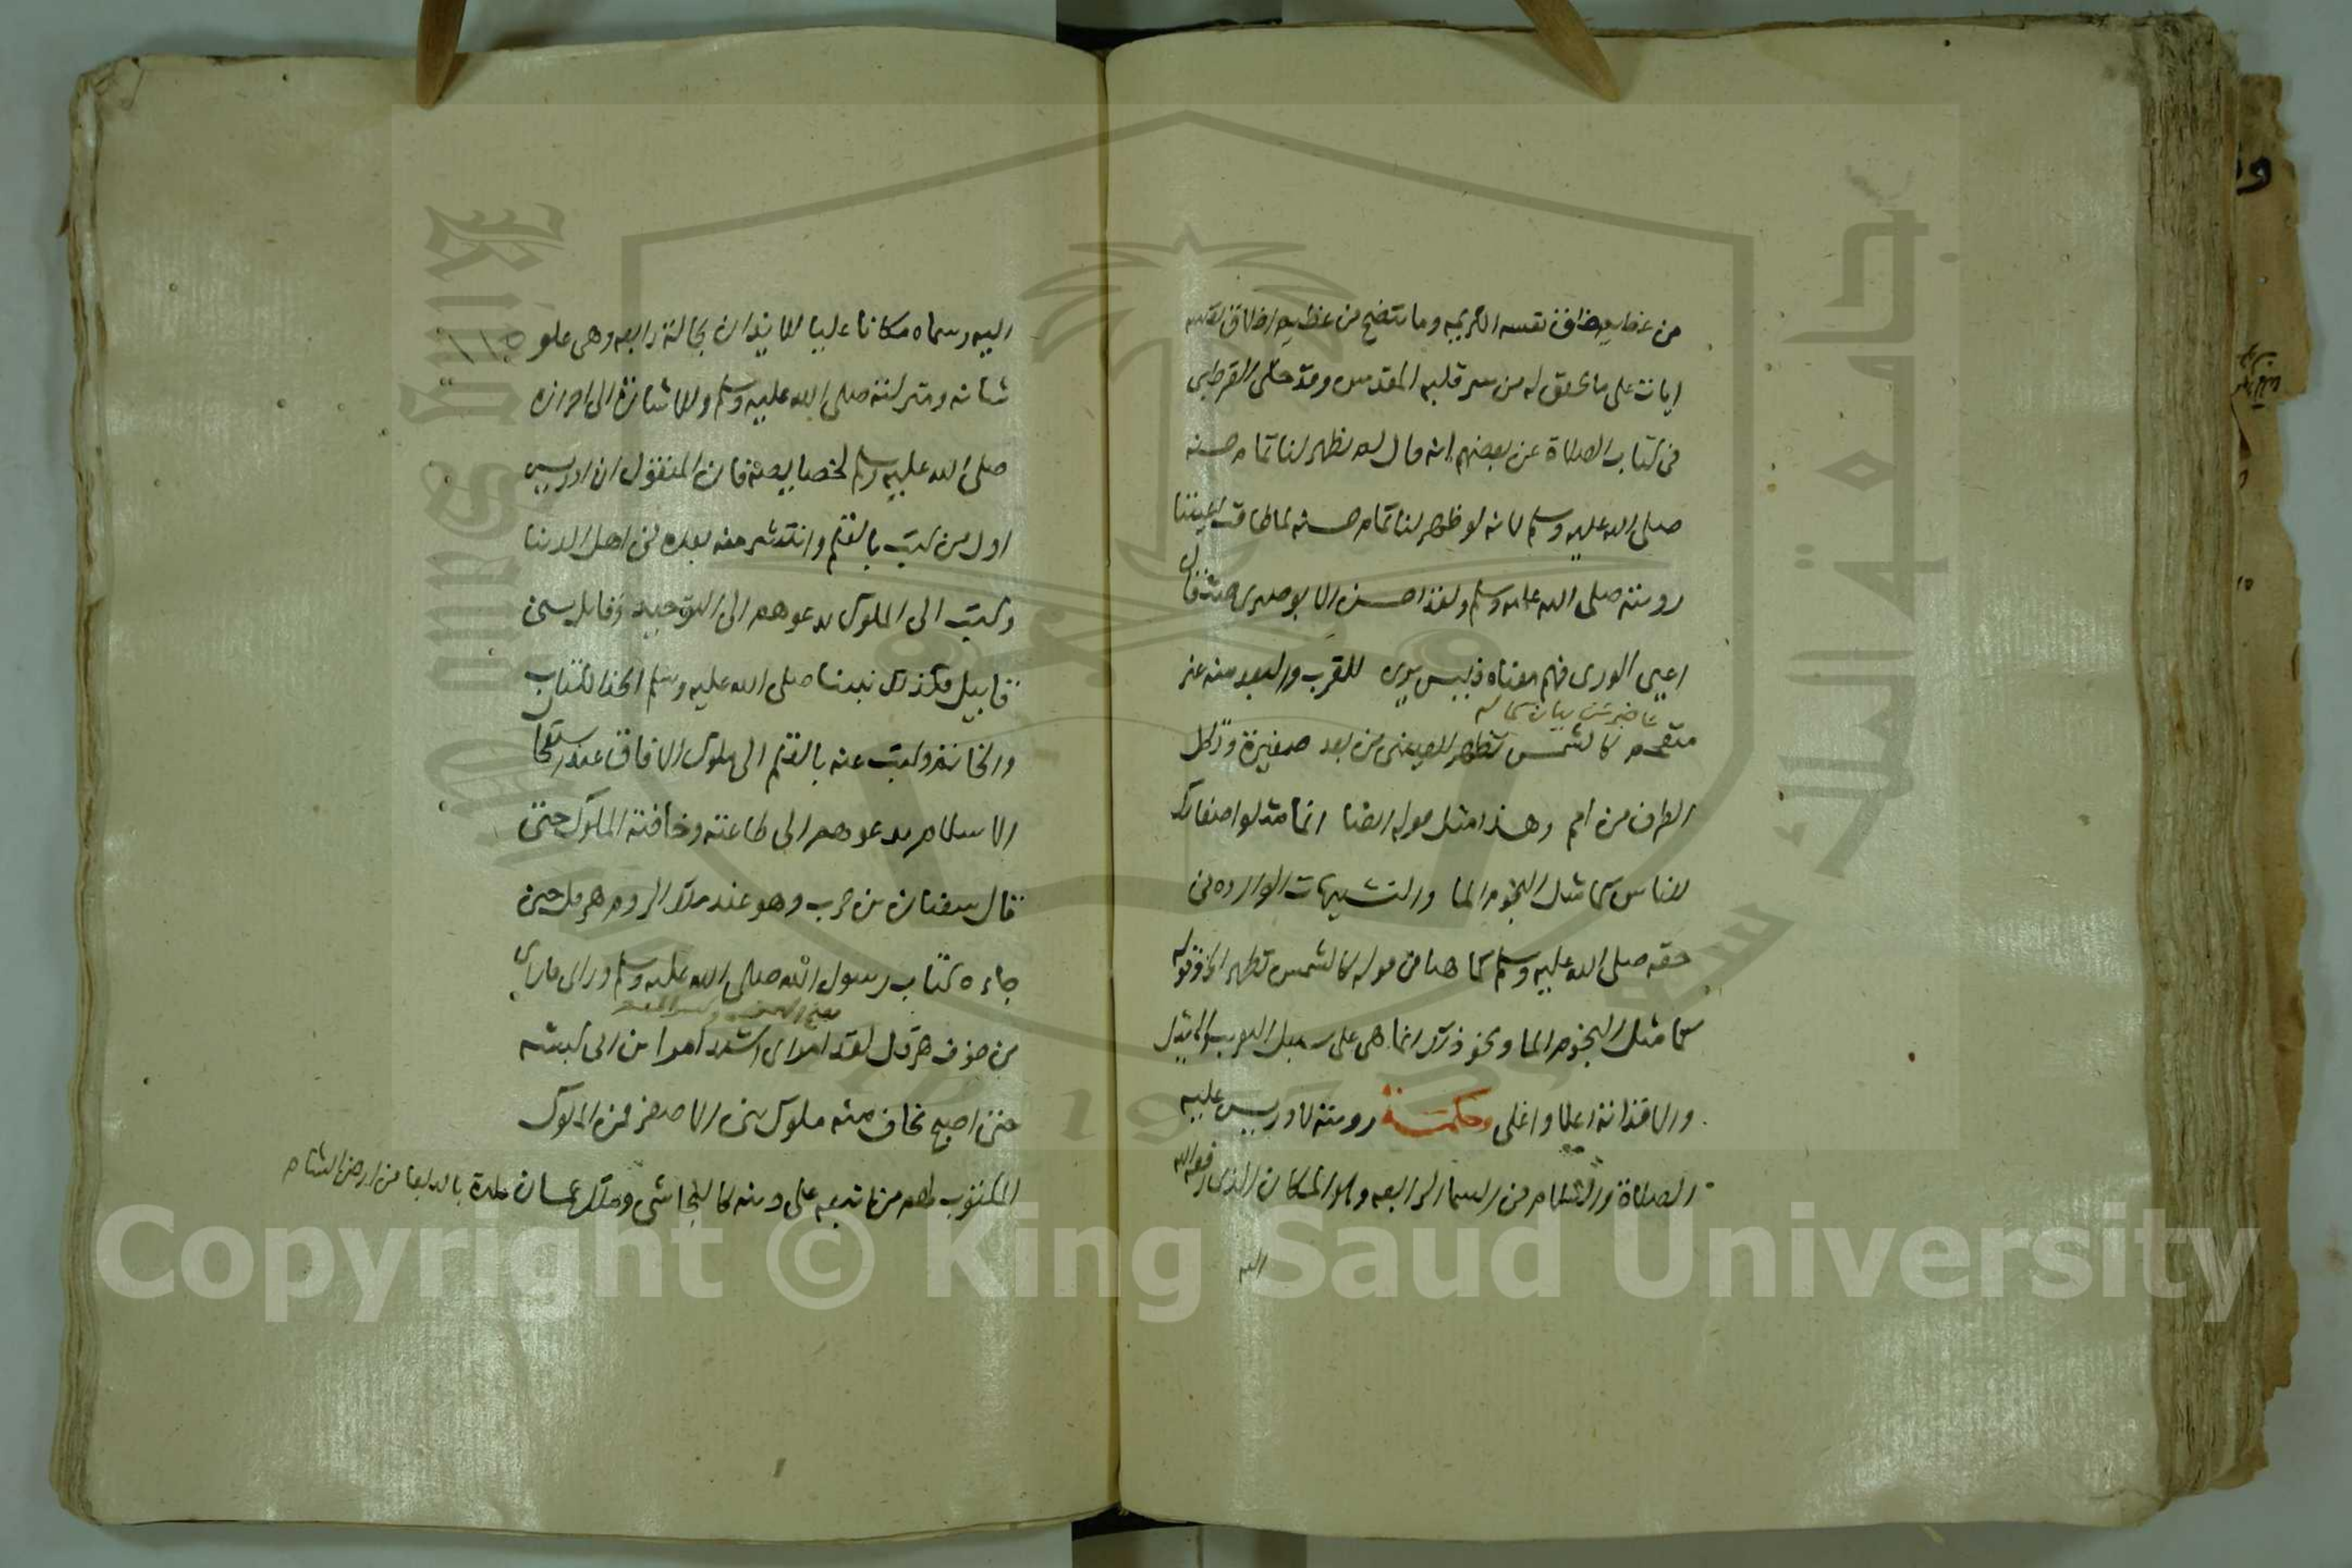 من عظيم خلق نفسه الكريمه وما يتضح من عظيم اخلاق نفسه
ايات على ما تحقق له من سر قلبه المقدس وقد حكى القرطبى
فى كتاب الصلاة عن بعضهم انه قال لم يظهر لنا تمام حسنه
صلى الله عليه وسلم لانه لو ظهر لنا تمام حسنه لما طاقت اعيننا
رويته صلى الله عليه وسلم ولقد احسن الابوصيرى حيث قال
اعيى الورى فهم معناه فليس يرى للقرب والبعد منه غير
منفحم كالشمس تظهر للعينين من بعد صغيرة وتكل
الطرف من امم وهذا مثل قوله ايضا انما مثلوا صفاتك
للناس كما مثل النجوم الما والتشبيهات الوارده فى
حقه صلى الله عليه وسلم كما هنا من قوله كالشمس تظهر الخ وقوله
كما مثل النجوم الما ونحو ذلك انما هى على سبيل التقريب والتمثيل
والا فذاته اعلا واغلى وحكمة رويته لادريس عليه
الصلاة والسلام فى السما الرابعه وهو المكان الذى رفعه الله
اليه
اليه وسماه مكانا عليا للايذان بحالة رابعه وهى علو
شانه ومنزلته صلى الله عليه وسلم وللاشارة الى احرازه
صلى الله عليه وسلم لخصايصه فان المنقول ان ادريس
اول من كتب بالقلم وانتشر منه بعده فى اهل الدنيا
وكتب الى الملوك يدعوهم الى التوحيد وقاتل بنى
قابيل فكذلك نبينا صلى الله عليه وسلم اتخذ الكتاب
والخاتم وكتب عنه بالقلم الى ملوك الافاق عند استعلا
الاسلام يدعوهم الى طاعته وخافته الملوك حتى
قال سفيان بن حرب وهو عند ملك الروم هرقل حين
جاءه كتاب رسول الله صلى الله عليه وسلم وراى ما راى
من خوف هرقل لقد امر امر ابن ابى كبشه
حتى اصبح تخاف منه ملوك بنى الاصفر فمن الملوك
المكتوب لهم من تبعه على دينه كالنجاشى وملك عمان بلدة بالبلقا من ارض الشام
Copyright © King Saud University